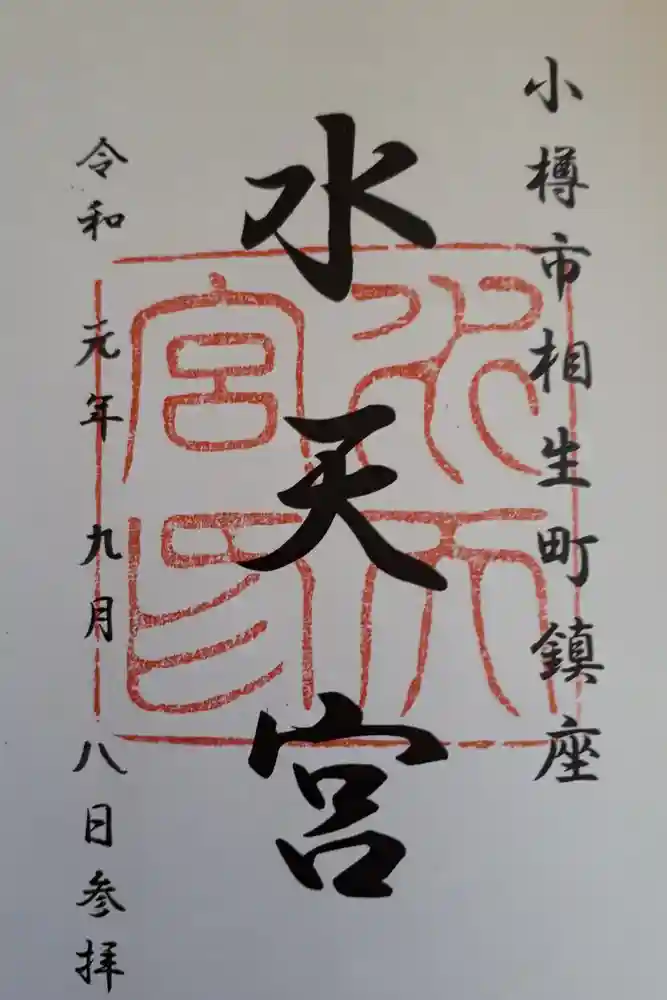 小樽市相生町鎮座
水天宮
水天宮印
令和元年九月八日参拝